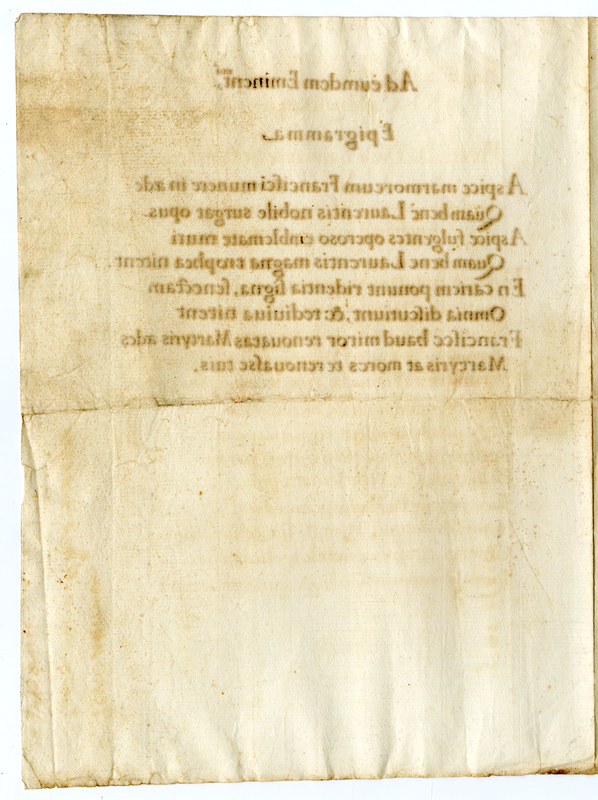 Ad eumdem Eminent.mi
Epigramma
Aspice marmoreum Francisci munere in æde
Quam bene Laurentis nobile surgat opus
Aspice fulgentes operoso emblemate muri
Quam bene Laurentis magna trophea nitent.
En cariem ponunt ridentia signa, senectam
Omnia discutiunt, & rediuiua nitent
Francisce haud miror renouatas Martyris ædes
Martyris at mores te renouasse tuis.